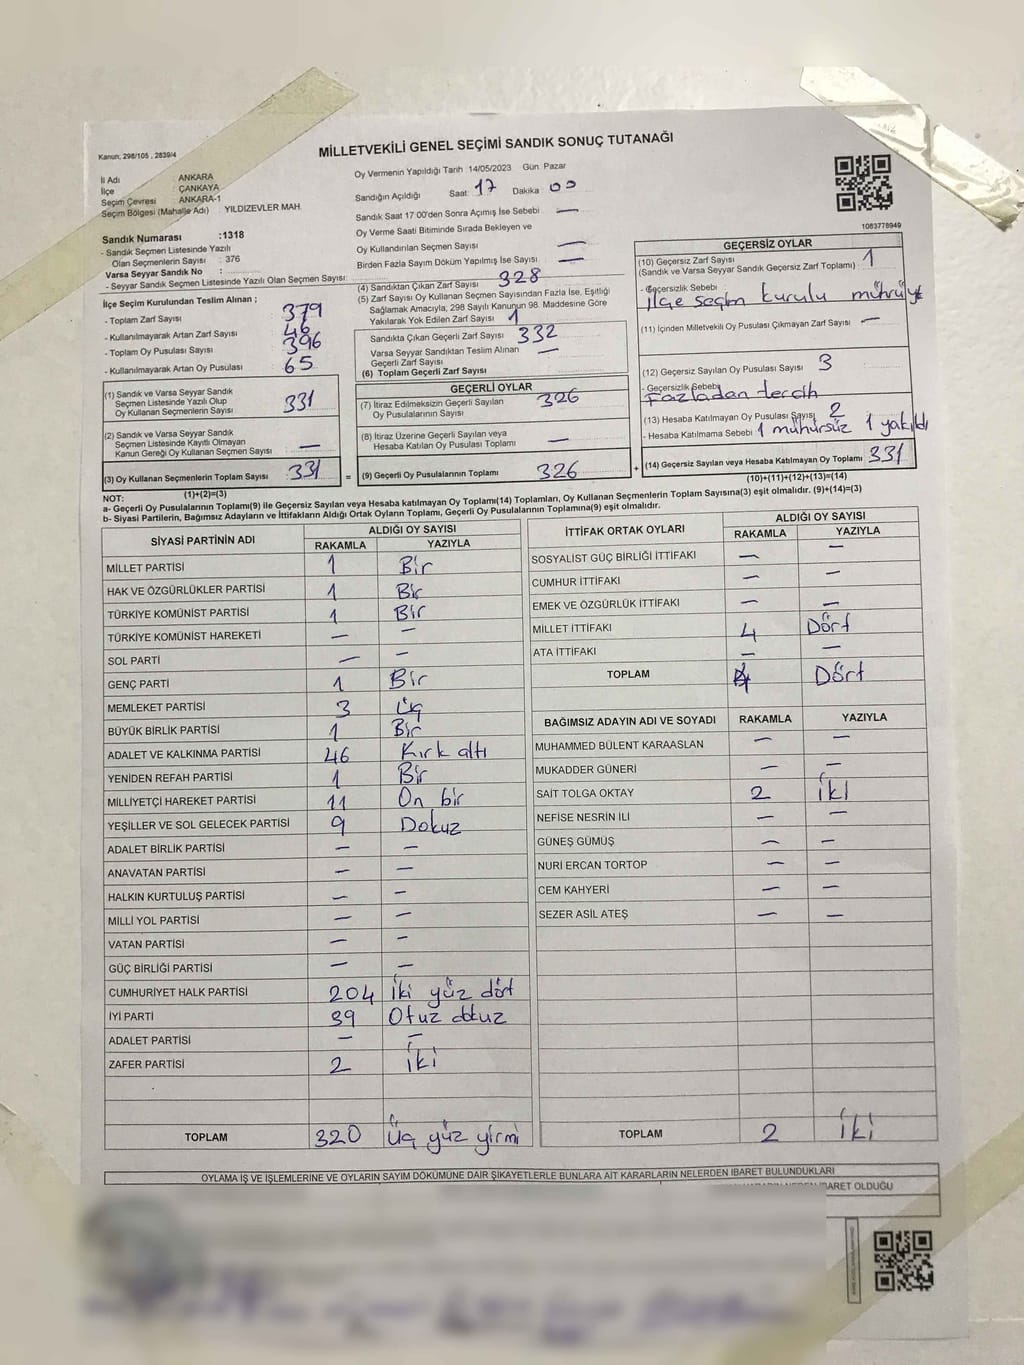 Kanun: 298/105 , 2839/4
MİLLETVEKİLİ GENEL SEÇİMİ SANDIK SONUÇ TUTANAĞI
İl Adı : ANKARA
İlçe : ÇANKAYA
Seçim Çevresi : ANKARA-1
Seçim Bölgesi (Mahalle Adı) : YILDIZEVLER MAH.
Sandık Numarası :1318
- Sandık Seçmen Listesinde Yazılı
Olan Seçmenlerin Sayısı : 376
Varsa Seyyar Sandık No :
- Seyyar Sandık Seçmen Listesinde Yazılı Olan Seçmen Sayısı:
İlçe Seçim Kurulundan Teslim Alınan ;
- Toplam Zarf Sayısı : 379
- Kullanılmayarak Artan Zarf Sayısı : 46
- Toplam Oy Pusulası Sayısı : 396
- Kullanılmayarak Artan Oy Pusulası : 65
(1) Sandık ve Varsa Seyyar Sandık
Seçmen Listesinde Yazılı Olup
Oy Kullanan Seçmenlerin Sayısı : 331
(2) Sandık ve Varsa Seyyar Sandık
Seçmen Listesinde Kayıtlı Olmayan
Kanun Gereği Oy Kullanan Seçmen Sayısı : —
(3) Oy Kullanan Seçmenlerin Toplam Sayısı : 331
(1)+(2)=(3)
Oy Vermenin Yapıldığı Tarih :14/05/2023 Gün: Pazar
Sandığın Açıldığı Saat: 17 Dakika : 00
Sandık Saat 17 00'den Sonra Açımış İse Sebebi : —
Oy Verme Saati Bitiminde Sırada Bekleyen ve
Oy Kullandırılan Seçmen Sayısı : —
Birden Fazla Sayım Döküm Yapılmış İse Sayısı : —
(4) Sandıktan Çıkan Zarf Sayısı : 328
(5) Zarf Sayısı Oy Kullanan Seçmen Sayısından Fazla İse, Eşitliği
Sağlamak Amacıyla, 298 Sayılı Kanunun 98. Maddesine Göre
Yakılarak Yok Edilen Zarf Sayısı : 1
Sandıkta Çıkan Geçerli Zarf Sayısı : 332
Varsa Seyyar Sandıktan Teslim Alınan
Geçerli Zarf Sayısı : —
(6) Toplam Geçerli Zarf Sayısı :
GEÇERLİ OYLAR
(7) İtiraz Edilmeksizin Geçerli Sayılan
Oy Pusulalarının Sayısı : 326
(8) İtiraz Üzerine Geçerli Sayılan veya
Hesaba Katılan Oy Pusulası Toplamı : —
= (9) Geçerli Oy Pusulalarının Toplamı : 326
1083778949
GEÇERSİZ OYLAR
(10) Geçersiz Zarf Sayısı
(Sandık ve Varsa Seyyar Sandık Geçersiz Zarf Toplamı) : 1
- Geçersizlik Sebebi
ilçe seçim kurulu
(11) İçinden Milletvekili Oy Pusulası Çıkmayan Zarf Sayısı : —
(12) Geçersiz Sayılan Oy Pusulası Sayısı : 3
- Geçersizlik Sebebi
Fazladan tercih
(13) Hesaba Katılmayan Oy Pusulası Sayısı 2
- Hesaba Katılmama Sebebi : 1 mühürsüz 1 yakıldı
+ (14) Geçersiz Sayılan veya Hesaba Katılmayan Oy Toplamı : 331
(10)+(11)+(12)+(13)=(14)
NOT:
a- Geçerli Oy Pusulalarının Toplamı(9) ile Geçersiz Sayılan veya Hesaba katılmayan Oy Toplamı(14) Toplamları, Oy Kullanan Seçmenlerin Toplam Sayısına(3) eşit olmalıdır. (9)+(14)=(3)
b- Siyasi Partilerin, Bağımsız Adayların ve İttifakların Aldığı Ortak Oyların Toplamı, Geçerli Oy Pusulalarının Toplamına(9) eşit olmalıdır.
SİYASİ PARTİNİN ADI ALDIĞI OY SAYISI
RAKAMLA YAZIYLA
MİLLET PARTİSİ 1 Bir
HAK VE ÖZGÜRLÜKLER PARTİSİ 1 Bir
TÜRKİYE KOMÜNİST PARTİSİ 1 Bir
TÜRKİYE KOMÜNİST HAREKETİ — —
SOL PARTİ — —
GENÇ PARTİ 1 Bir
MEMLEKET PARTİSİ 3 Üç
BÜYÜK BİRLİK PARTİSİ 1 Bir
ADALET VE KALKINMA PARTİSİ 46 Kırk altı
YENİDEN REFAH PARTİSİ 1 Bir
MİLLİYETÇİ HAREKET PARTİSİ 11 On bir
YEŞİLLER VE SOL GELECEK PARTİSİ 9 Dokuz
ADALET BİRLİK PARTİSİ — —
ANAVATAN PARTİSİ — —
HALKIN KURTULUŞ PARTİSİ — —
MİLLİ YOL PARTİSİ — —
VATAN PARTİSİ — —
GÜÇ BİRLİĞİ PARTİSİ — —
CUMHURİYET HALK PARTİSİ 204 İki yüz dört
İYİ PARTİ 39 Otuz dokuz
ADALET PARTİSİ — —
ZAFER PARTİSİ 2 İki
TOPLAM 320 Üç yüz yirmi
İTTİFAK ORTAK OYLARI ALDIĞI OY SAYISI
RAKAMLA YAZIYLA
SOSYALİST GÜÇ BİRLİĞİ İTTİFAKI — —
CUMHUR İTTİFAKI — —
EMEK VE ÖZGÜRLÜK İTTİFAKI — —
MİLLET İTTİFAKI 4 Dört
ATA İTTİFAKI — —
TOPLAM 4 Dört
BAĞIMSIZ ADAYIN ADI VE SOYADI RAKAMLA YAZIYLA
MUHAMMED BÜLENT KARAASLAN — —
MUKADDER GÜNERİ — —
SAİT TOLGA OKTAY 2 İki
NEFİSE NESRİN İLİ — —
GÜNEŞ GÜMÜŞ — —
NURİ ERCAN TORTOP — —
CEM KAHYERİ — —
SEZER ASİL ATEŞ — —
TOPLAM 2 İki
OYLAMA İŞ VE İŞLEMLERİNE VE OYLARIN SAYIM DÖKÜMÜNE DAİR ŞİKAYETLERLE BUNLARA AİT KARARLARIN NELERDEN İBARET BULUNDUKLARI
İBARET OLDUĞU